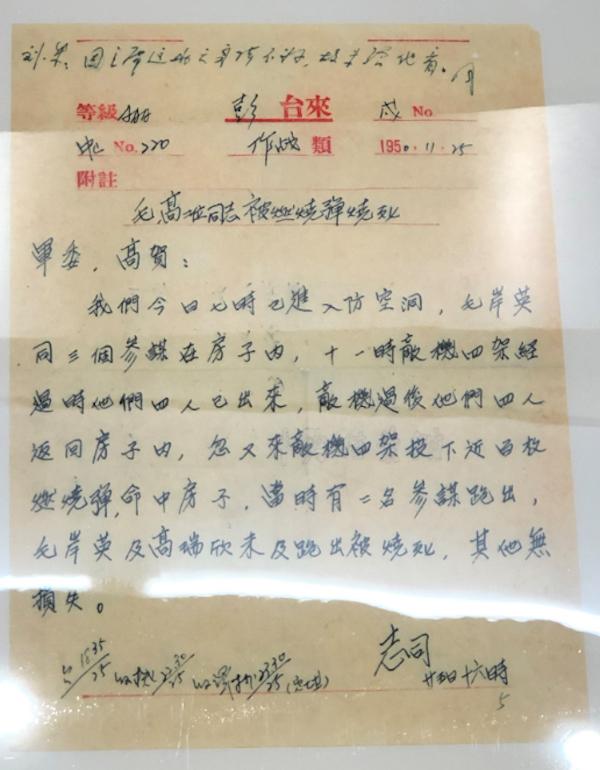 等級 AAA 彭 台來 戌 No.
No. 220 作战 類 1950.11.25
附註
毛、高二位同志被燃燒彈燒死
軍委，高賀：
我們今日七時已進入防空洞，毛岸英
同三個參謀在房子內，十一時敵機四架經
過時他們四人已出來，敵機過後他們四人
返回房子內，忽又來敵機四架投下近百枚
燃燒彈，命中房子，當時有二名參謀跑出，
毛岸英及高瑞欣未及跑出被燒死，其他無
損失。
志司
廿五日十六時
16.35/25 23.30/25
5